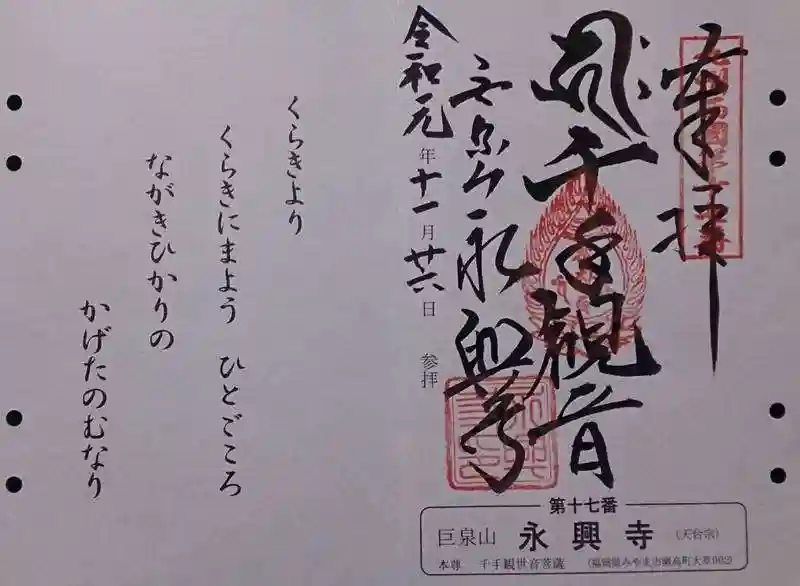 奉拝
千手観音
永興寺
令和元年十一月廿六日 参拝
くらきより
くらきにまよう ひとごころ
ながきひかりの
かげたのむなり
第十七番
巨泉山 永興寺 (天台宗)
本尊 千手観世音菩薩 (福岡県みやま市瀬高町大草992)